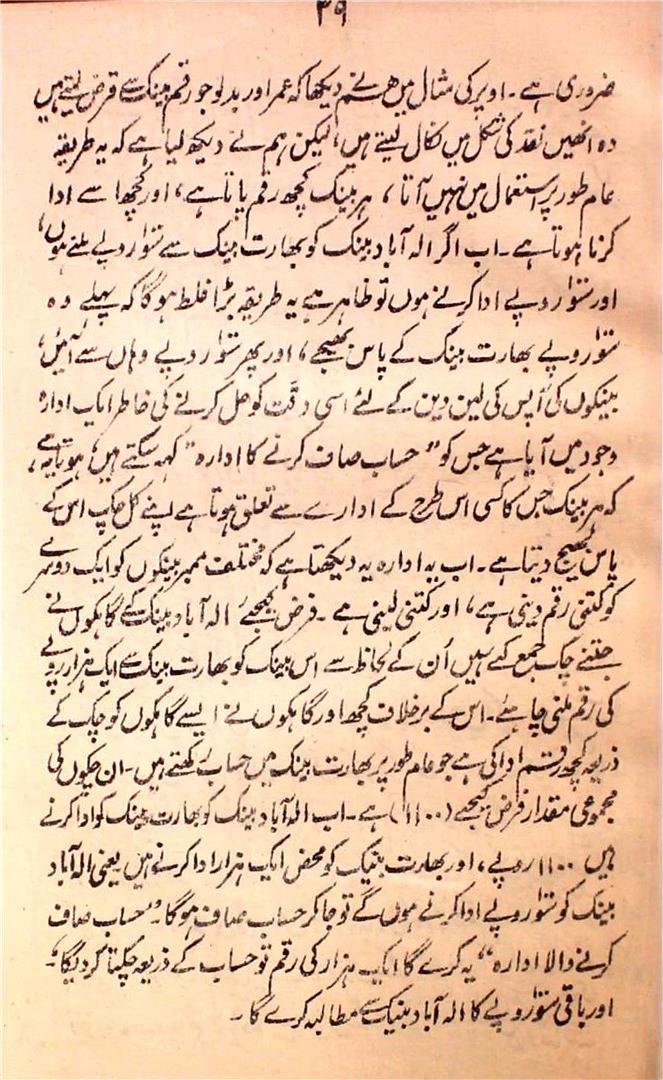 ۳۹
ضروری ہے ۔ اوپر کی مثال میں ہم نے دیکھا کہ عمر اور پدلو جو رقم بینک سے قرض لیتے ہیں
وہ انھیں نقد کی شکل میں نکال لیتے ہیں، لیکن ہم نے دیکھ لیا ہے کہ یہ طریقہ
عام طور پر استعمال میں نہیں آتا ، ہر بینک کچھ رقم پاتا ہے ، اور کچھ اسے ادا
کرنا ہوتا ہے ۔ اب اگر الہ آباد بینک کو بھارت بینک سے سَو روپے ملنے ہوں،
اور سَو روپے ادا کرنے ہوں تو ظاہر ہے یہ طریقہ بڑا غلط ہوگا کہ پہلے وہ
سَو روپے بھارت بینک کے پاس بھیجے ، اور پھر سَو روپے وہاں سے آئیں،
بینکوں کی آپس کی لین دین کے لئے اسی دقّت کو حل کرنے کی خاطر ایک ادارہ
وجود میں آیا ہے جس کو ”حساب صاف کرنے کا ادارہ“ کہہ سکتے ہیں، ہوتا یہ ہے ،
کہ ہر بینک جس کا کسی اس طرح کے ادارے سے تعلق ہوتا ہے اپنے کل چک اس کے
پاس بھیج دیتا ہے ۔ اب یہ ادارہ یہ دیکھتا ہے کہ مختلف ممبر بینکوں کو ایک دوسرے
کو کتنی رقم دینی ہے ، اور کتنی لینی ہے ۔ فرض کیجئے الہ آباد بینک کے گاہکوں نے
جتنے چک جمع کئے ہیں اُن کے لحاظ سے اس بینک کو بھارت بینک سے ایک ہزار روپے
کی رقم ملنی چاہئے ۔ اس کے برخلاف کچھ اور گاہکوں نے ایسے گاہکوں کو چک کے
ذریعہ کچھ رقم ادا کی ہے جو عام طور پر بھارت بینک میں حساب رکھتے ہیں ۔ ان چکوں کی
مجموعی مقدار فرض کیجئے (۱۱۰۰) ہے ۔ اب الہ آباد بینک کو بھارت بینک کو ادا کرنے
ہیں ۱۱۰۰ روپے ، اور بھارت بینک کو محض ایک ہزار ادا کرنے ہیں یعنی الہ آباد
بینک کو سَو روپے ادا کرنے ہوں گے تو جا کر حساب صاف ہوگا ۔ ”حساب صاف
کرنے والا ادارہ“ یہ کرے گا ایک ہزار کی رقم تو حساب کے ذریعہ چکتا کر دیگا ،
اور باقی سَو روپے کا الہ آباد بینک سے مطالبہ کرے گا ۔